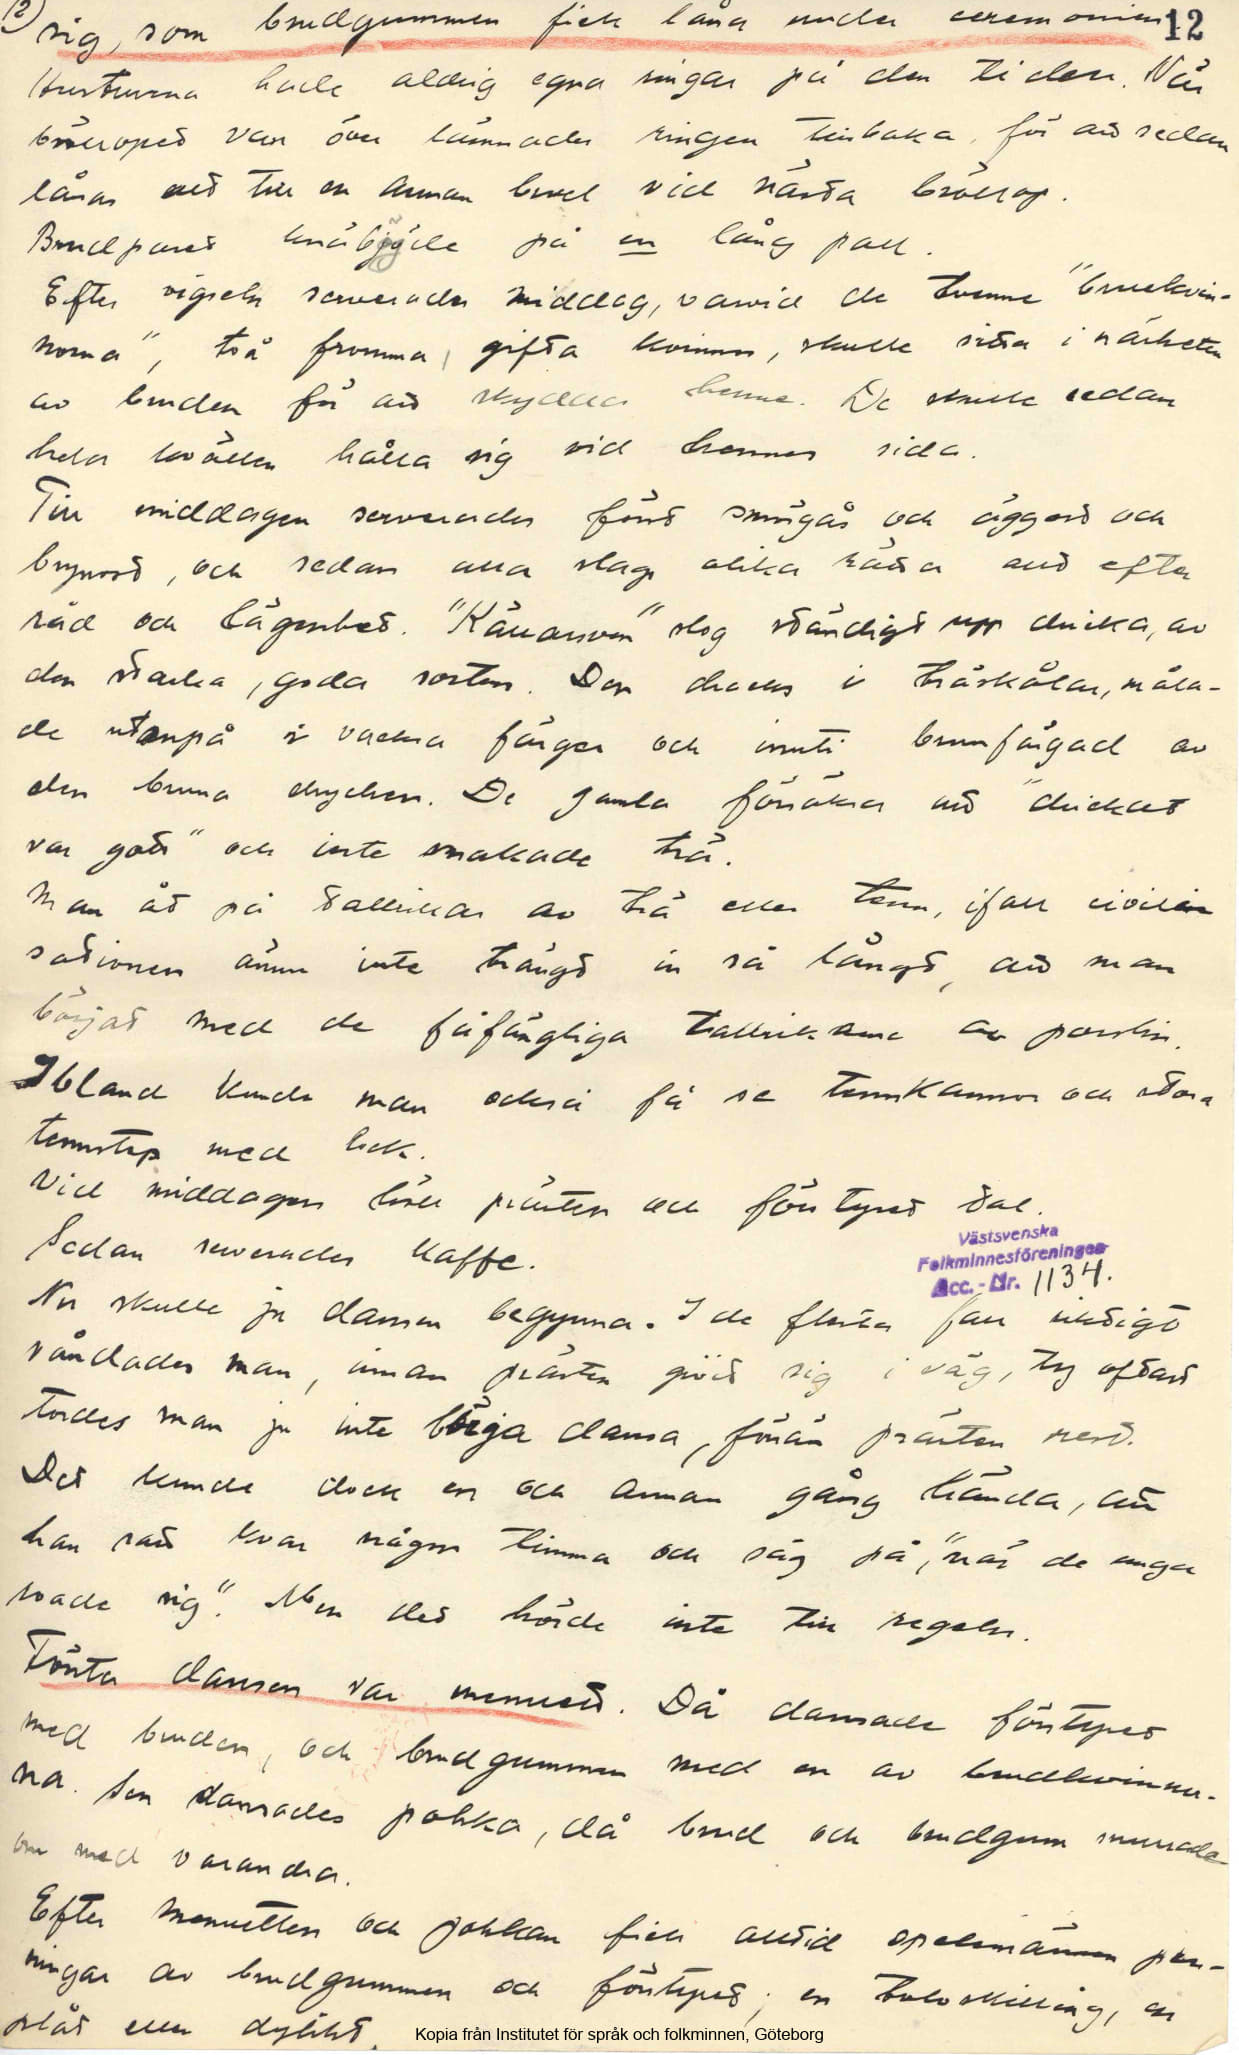 2)
12
sig, som brudgummen fick låna under ceremonien.
Hustrurna hade aldrig egna ringar på den tiden. När
bröllopet var över lämnades ringen tillbaka, för att sedan
lånas ut till en annan brud vid nästa bröllop.
Brudparet knäböjde på en lång pall.
Efter vigseln serverades middag, varvid de tvenne "brudkvin-
norna", två fromma, gifta kvinnor, skulle sitta i närheten
av bruden för att skydda henne. De skulle sedan
hela kvällen hålla sig vid hennes sida.
Till middagen serverades först smörgås och äggost och
brynost, och sedan alla slags olika rätter allt efter
råd och lägenhet. "Källarsven" slog ständigt upp dricka, av
den starka, goda sorten. Den dracks i träskålar, måla-
de utanpå i vackra färger och inuti brunfärgad av
den bruna drycken. De gamla försäkra att "drickat
var gott" och inte smakade trä.
Man åt på tallrikar av trä eller tenn, ifall civili
sationen ännu inte trängt in så långt, att man
börjat med de fåfängliga tallrikarna av porslin.
Ibland kunde man också få se tennkannor och stora
tennstop med lock.
Vid middagen höll prästen och förstyret tal.
Sedan serverades kaffe.
Västsvenska
Folkminnesföreningen
Acc.-Nr. 1134.
Nu skulle ju dansen begynna. I de flesta fall riktigt
våndades man, innan prästen givit sig i väg, ty oftast
tordes man ju inte börja dansa, förrän prästen rest.
Det kunde dock en och annan gång hända, att
han satt kvar någon timma och såg på, "när de unga
roade sig". Men det hörde inte till regeln.
Första dansen var menuett. Då dansade förstyret
med bruden, och brudgummen med en av brudkvinnor-
na. Sen dansades polska, då brud och brudgum svängde
om med varandra.
Efter menuetten och polskan fick alltid spelmännen pen-
ningar av brudgummen och förstyret, en tolvskilling, en
plåt eller dylikt.
Kopia från Institutet för språk och folkminnen, Göteborg